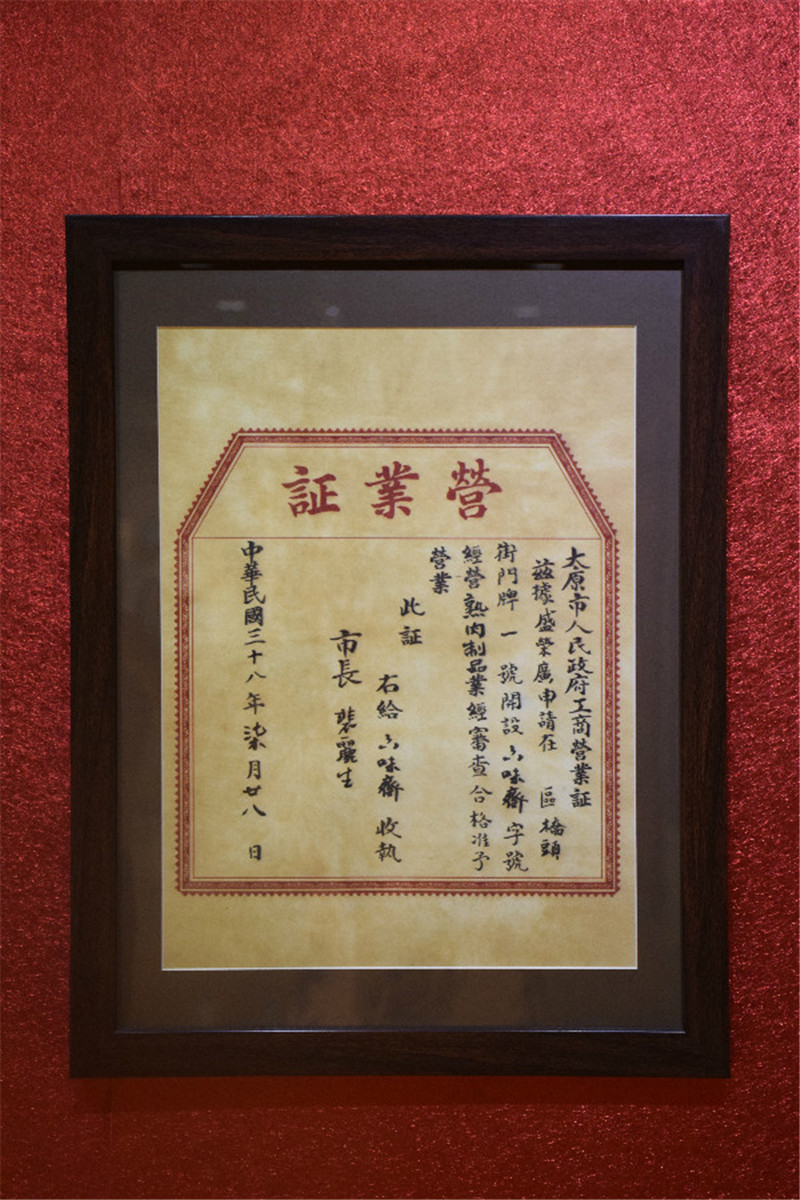 營業証
太原市人民政府工商營業証
茲據盛榮廣申請在 區橋頭
街門牌一號開設六味齋字號
經營熟肉制品業經審查合格准予
營業
此証
右給六味齋收執
市長 裴麗生
中華民國三十八年柒月廿八日